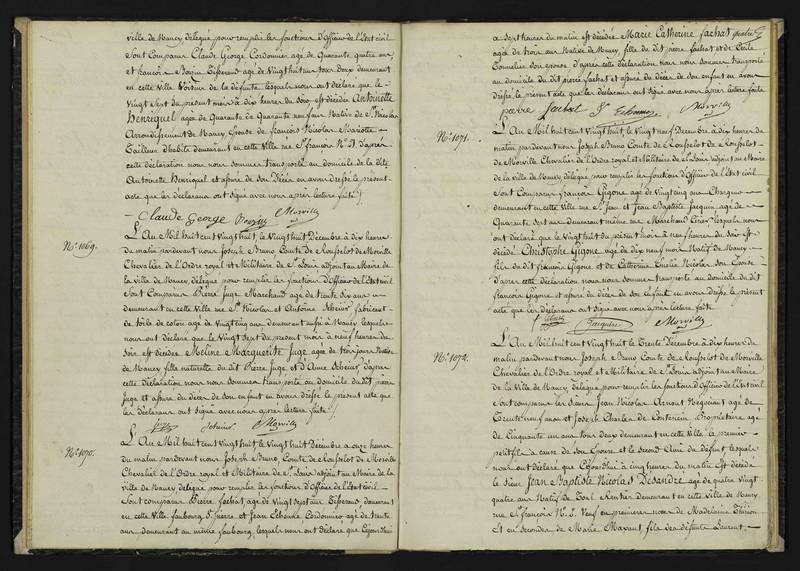 ville de Nancy, délégué pour remplir les fonctions d'Officier de l'état civil
Sont Comparus Claude George Cordonnier agé de Quarante quatre ans,
et francois Tisserand agé de Vingt huit ans tous deux demeurant
en cette Ville Voisins de la défunte, lesquels nous ont déclaré que le
Vingt Sept du présent mois à dix heures du soir est décédée Antoinette
Henriquel agée de Quarante neuf ans Native de St Nicolas
Arrondissement de Nancy Epouse de francois Nicolas Mariotte
Tailleur d'habits demeurant en cette Ville rue St francois No 31. d'après
cette déclaration nous nous sommes transporté au domicile de la dite
Antoinette Henriquel et assuré de son Décès en avons dressé le présent
acte que les déclarans ont signé avec nous après lecture faite.
Claude George Morville
No 1069.
L'An Mil huit cent Vingt huit, le Vingt huit Décembre à dix heures
du matin pardevant nous Joseph Bruno Comte de Rousselot de Morville
Chevalier de l'Ordre royal et Militaire de St Louis adjoint au Maire de
la Ville de Nancy, délégué pour remplir les fonctions d'Officier de l'état civil
Sont Comparus Pierre Juge Marchand agé de trente dix ans
demeurant en cette Ville rue St Nicolas et Antoine fabricant
de toile de coton agé de Vingt cinq ans demeurant aussi à Nancy lesquels
nous ont déclaré que le Vingt Sept du présent mois à neuf heures du
soir est décédée Marguerite Juge agée de trois jours Native
de Nancy fille naturelle du dit Pierre Juge, et d'Anne d'après
cette déclaration nous nous sommes transporté au domicile du dit pierre
Juge et assuré du décès de son enfant en avons dressé le présent acte que
les déclarans ont signé avec nous après lecture faite.
Morville
No 1070.
L'An Mil huit cent Vingt huit, le Vingt huit Décembre à onze heures
du matin pardevant nous Joseph Bruno Comte de Rousselot de Morville
Chevalier de l'Ordre royal et Militaire de St Louis adjoint au Maire de la
ville de Nancy délégué pour remplir les fonctions d'Officier de l'état Civil
Sont comparus Pierre Sachat agé de Vingt sept ans Tisserand, demeurant
en cette Ville faubourg St pierre et Jean Cordonnier agé de trente
ans demeurant au même faubourg, lesquels nous ont déclaré que Cejourd'hui
a sept heures du matin est décédée Marie Catherine Sachat
agée de trois ans Native de Nancy, fille du dit pierre Sachat et de
Tonnelier son épouse d'après cette déclaration nous nous sommes transporté
au domicile du dit pierre Sachat et assuré du décès de son enfant en avons
dressé le présent acte que les déclarans ont signé avec nous après lecture faite
pierre Sachat Morville
No 1071.
L'An Mil huit cent Vingt huit, le Vingt neuf Décembre à dix heures du
matin pardevant nous Joseph Bruno Comte de Rousselot
de Morville Chevalier de l'Ordre royal et Militaire de St Louis adjoint au Maire
de la Ville de Nancy délégué pour remplir les fonctions d'Officier de l'état Civil
Sont Comparus francois Gigone agé de Vingt cinq ans
demeurant en cette Ville rue St Jean et Jean Baptiste Jacquin agé de
Quarante Sept ans demeurant même rue Marchand lesquels nous
ont déclaré que le Vingt huit du présent mois à neuf heures du soir est
décédé Christophe Gigone agé de dix neuf mois Natif de Nancy
fils du dit francois Gigone et de Catherine Nicolas son Epouse
d'après cette déclaration nous nous sommes transporté au domicile du dit
francois Gigone et assuré du décès de son enfant en avons dressé le présent
acte que les déclarans ont signé avec nous après lecture faite
Jacquin Morville
No 1072.
L'An Mil huit cent Vingt huit le Trente Décembre à dix heures du
matin pardevant nous Joseph Bruno Comte de Rousselot de Morville
Chevalier de l'Ordre royal et Militaire de St Louis adjoint au Maire
de la Ville de Nancy délégué pour remplir les fonctions d'Officier de l'état civil
sont comparus les sieurs Jean Nicolas Arnout Négociant agé de
Trente neuf ans et Joseph Charles de Propriétaire agé
de Cinquante un ans tous deux demeurant en cette Ville, le premier
petit fils à cause de son Epouse et le second Ami du défunt, lesquels
nous ont déclaré que Cejourd'hui à cinq heures du matin est décédé
le Sieur Jean Baptiste Nicolas Desandre agé de quatre vingt
quatre ans Natif de Toul Rentier demeurant en cette Ville de Nancy,
rue St francois No 2. Veuf en premieres noces de Madelaine
et en secondes de Marie fils des défunts Laurent